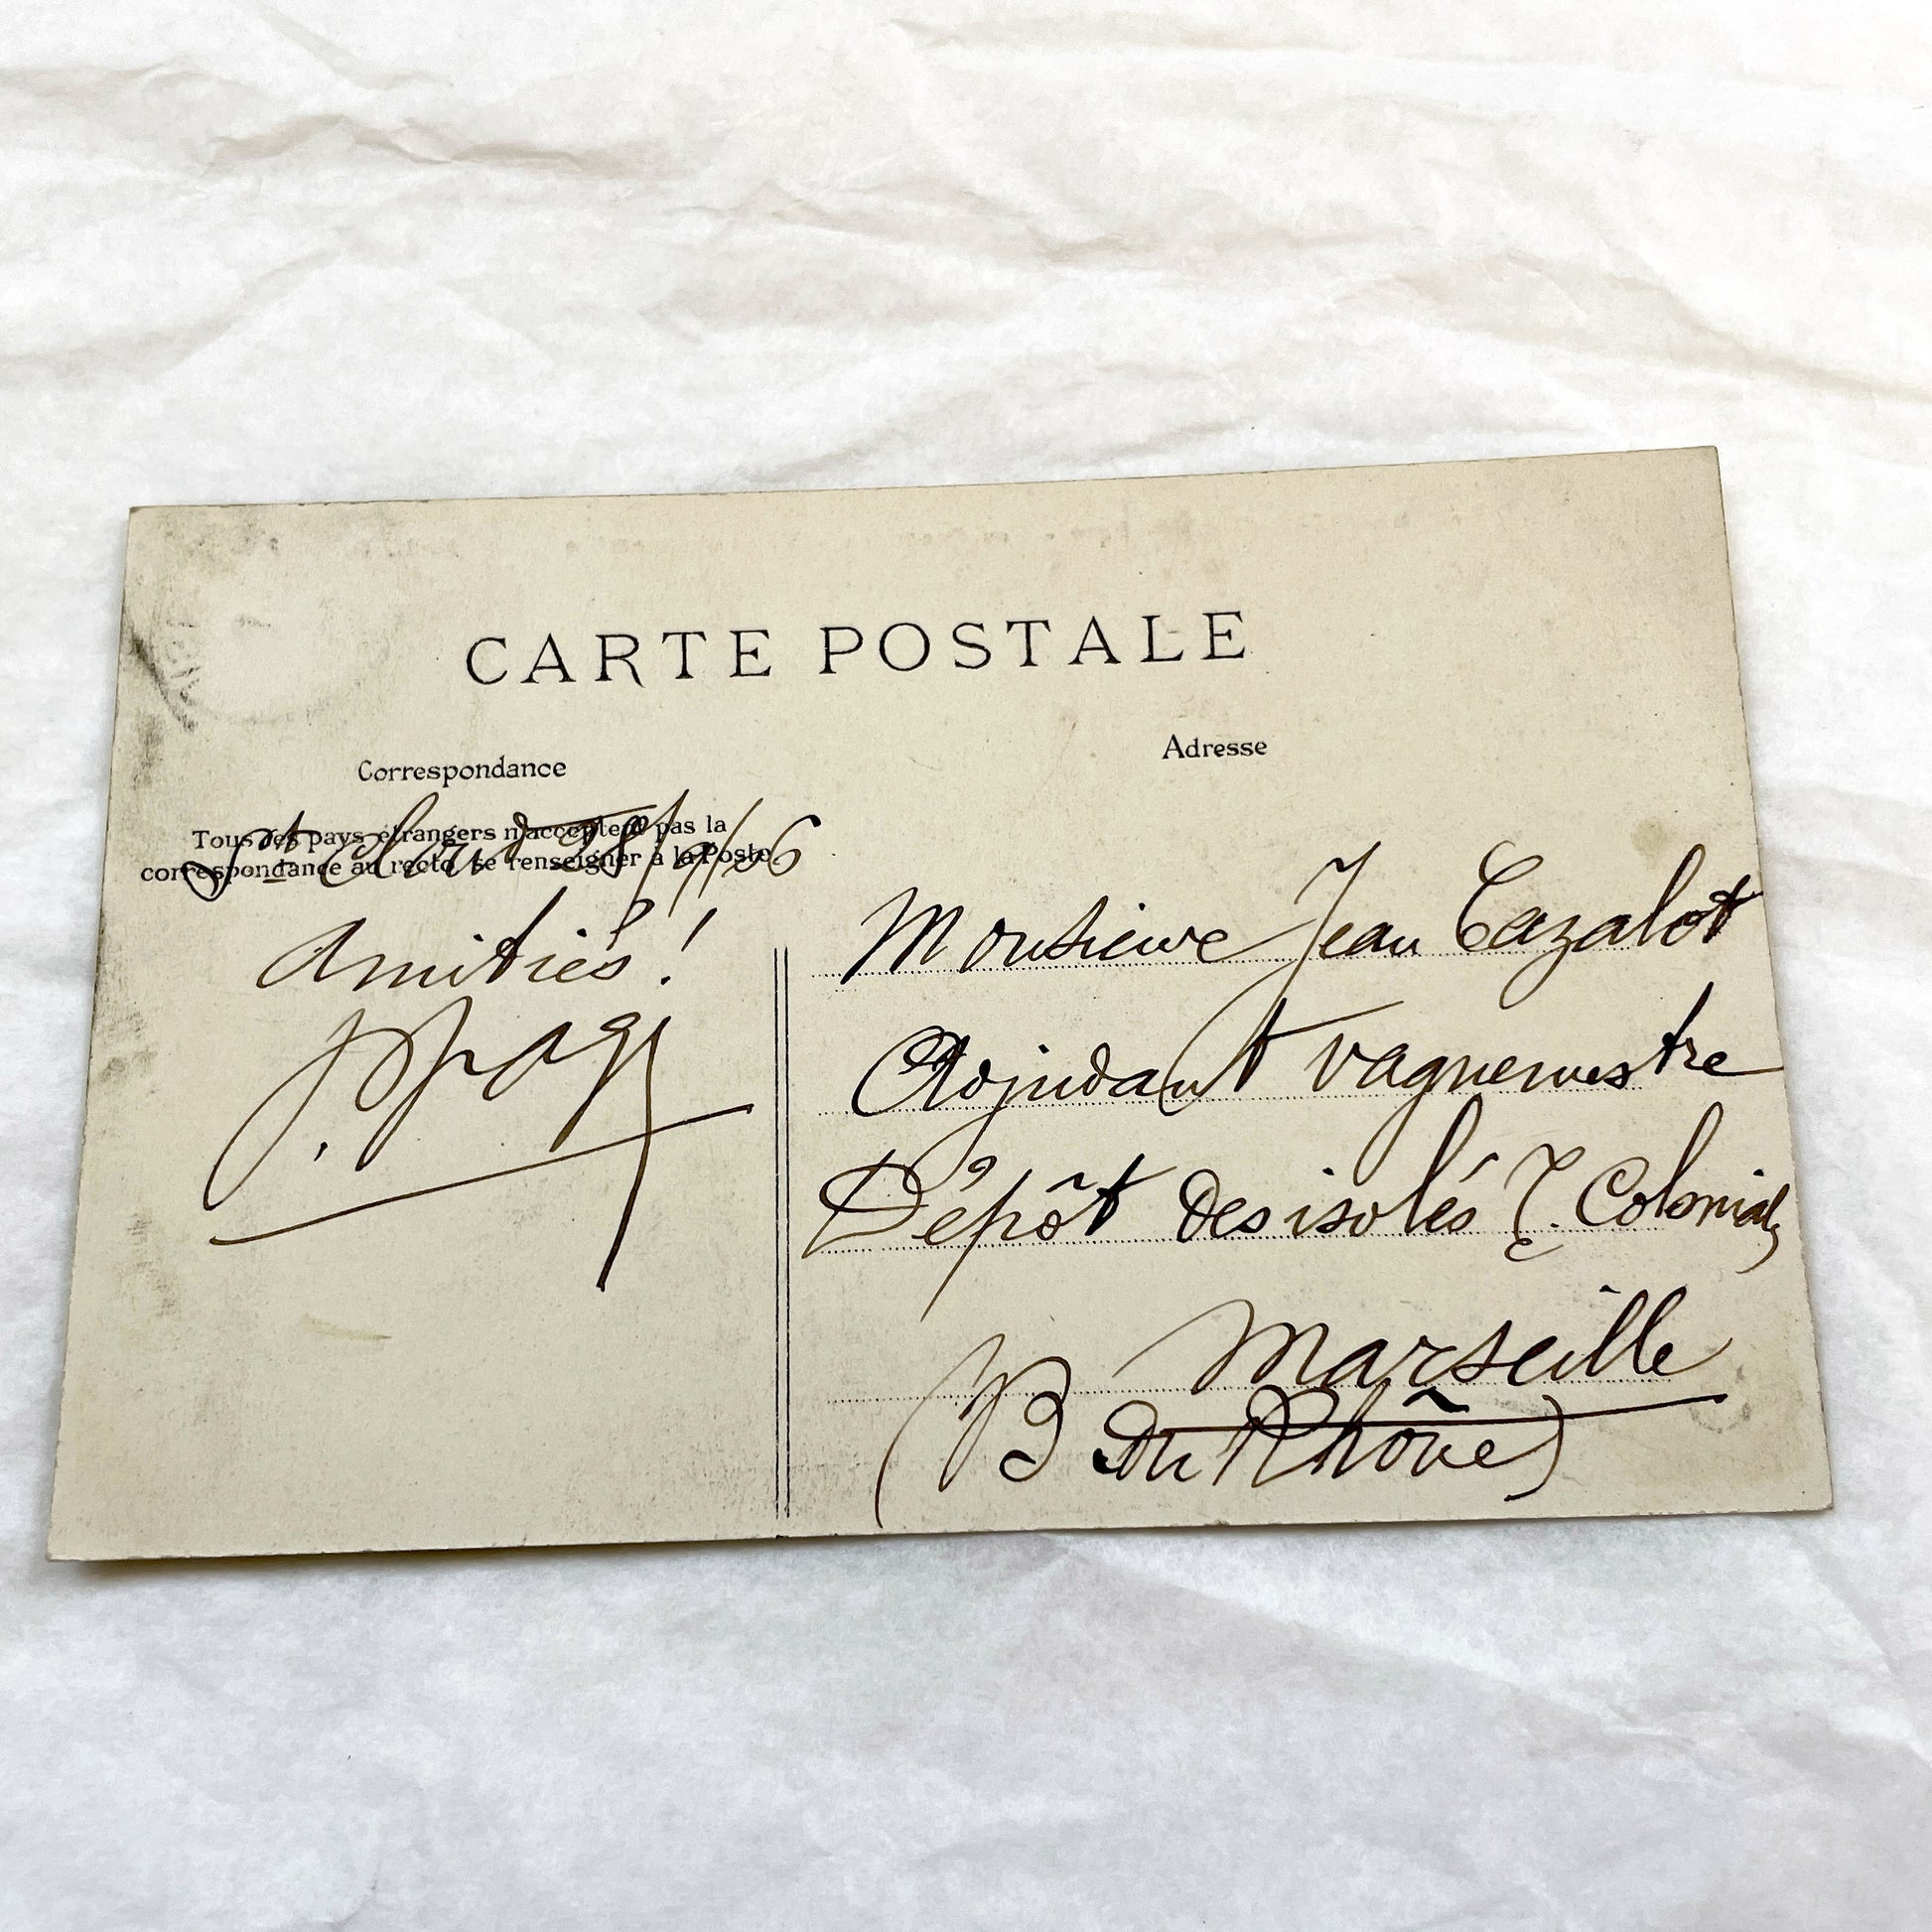 CARTE POSTALE
Correspondance
Tous les pays étrangers n'acceptent pas la
correspondance au recto, se renseigner à la Poste
St Claud 28/9/06
Amitiés!
Adresse
Monsieur Jean Cazalot
Adjudant vaguemestre
Dépôt des isolés T. Coloniales
Marseille
(B du Rhône)